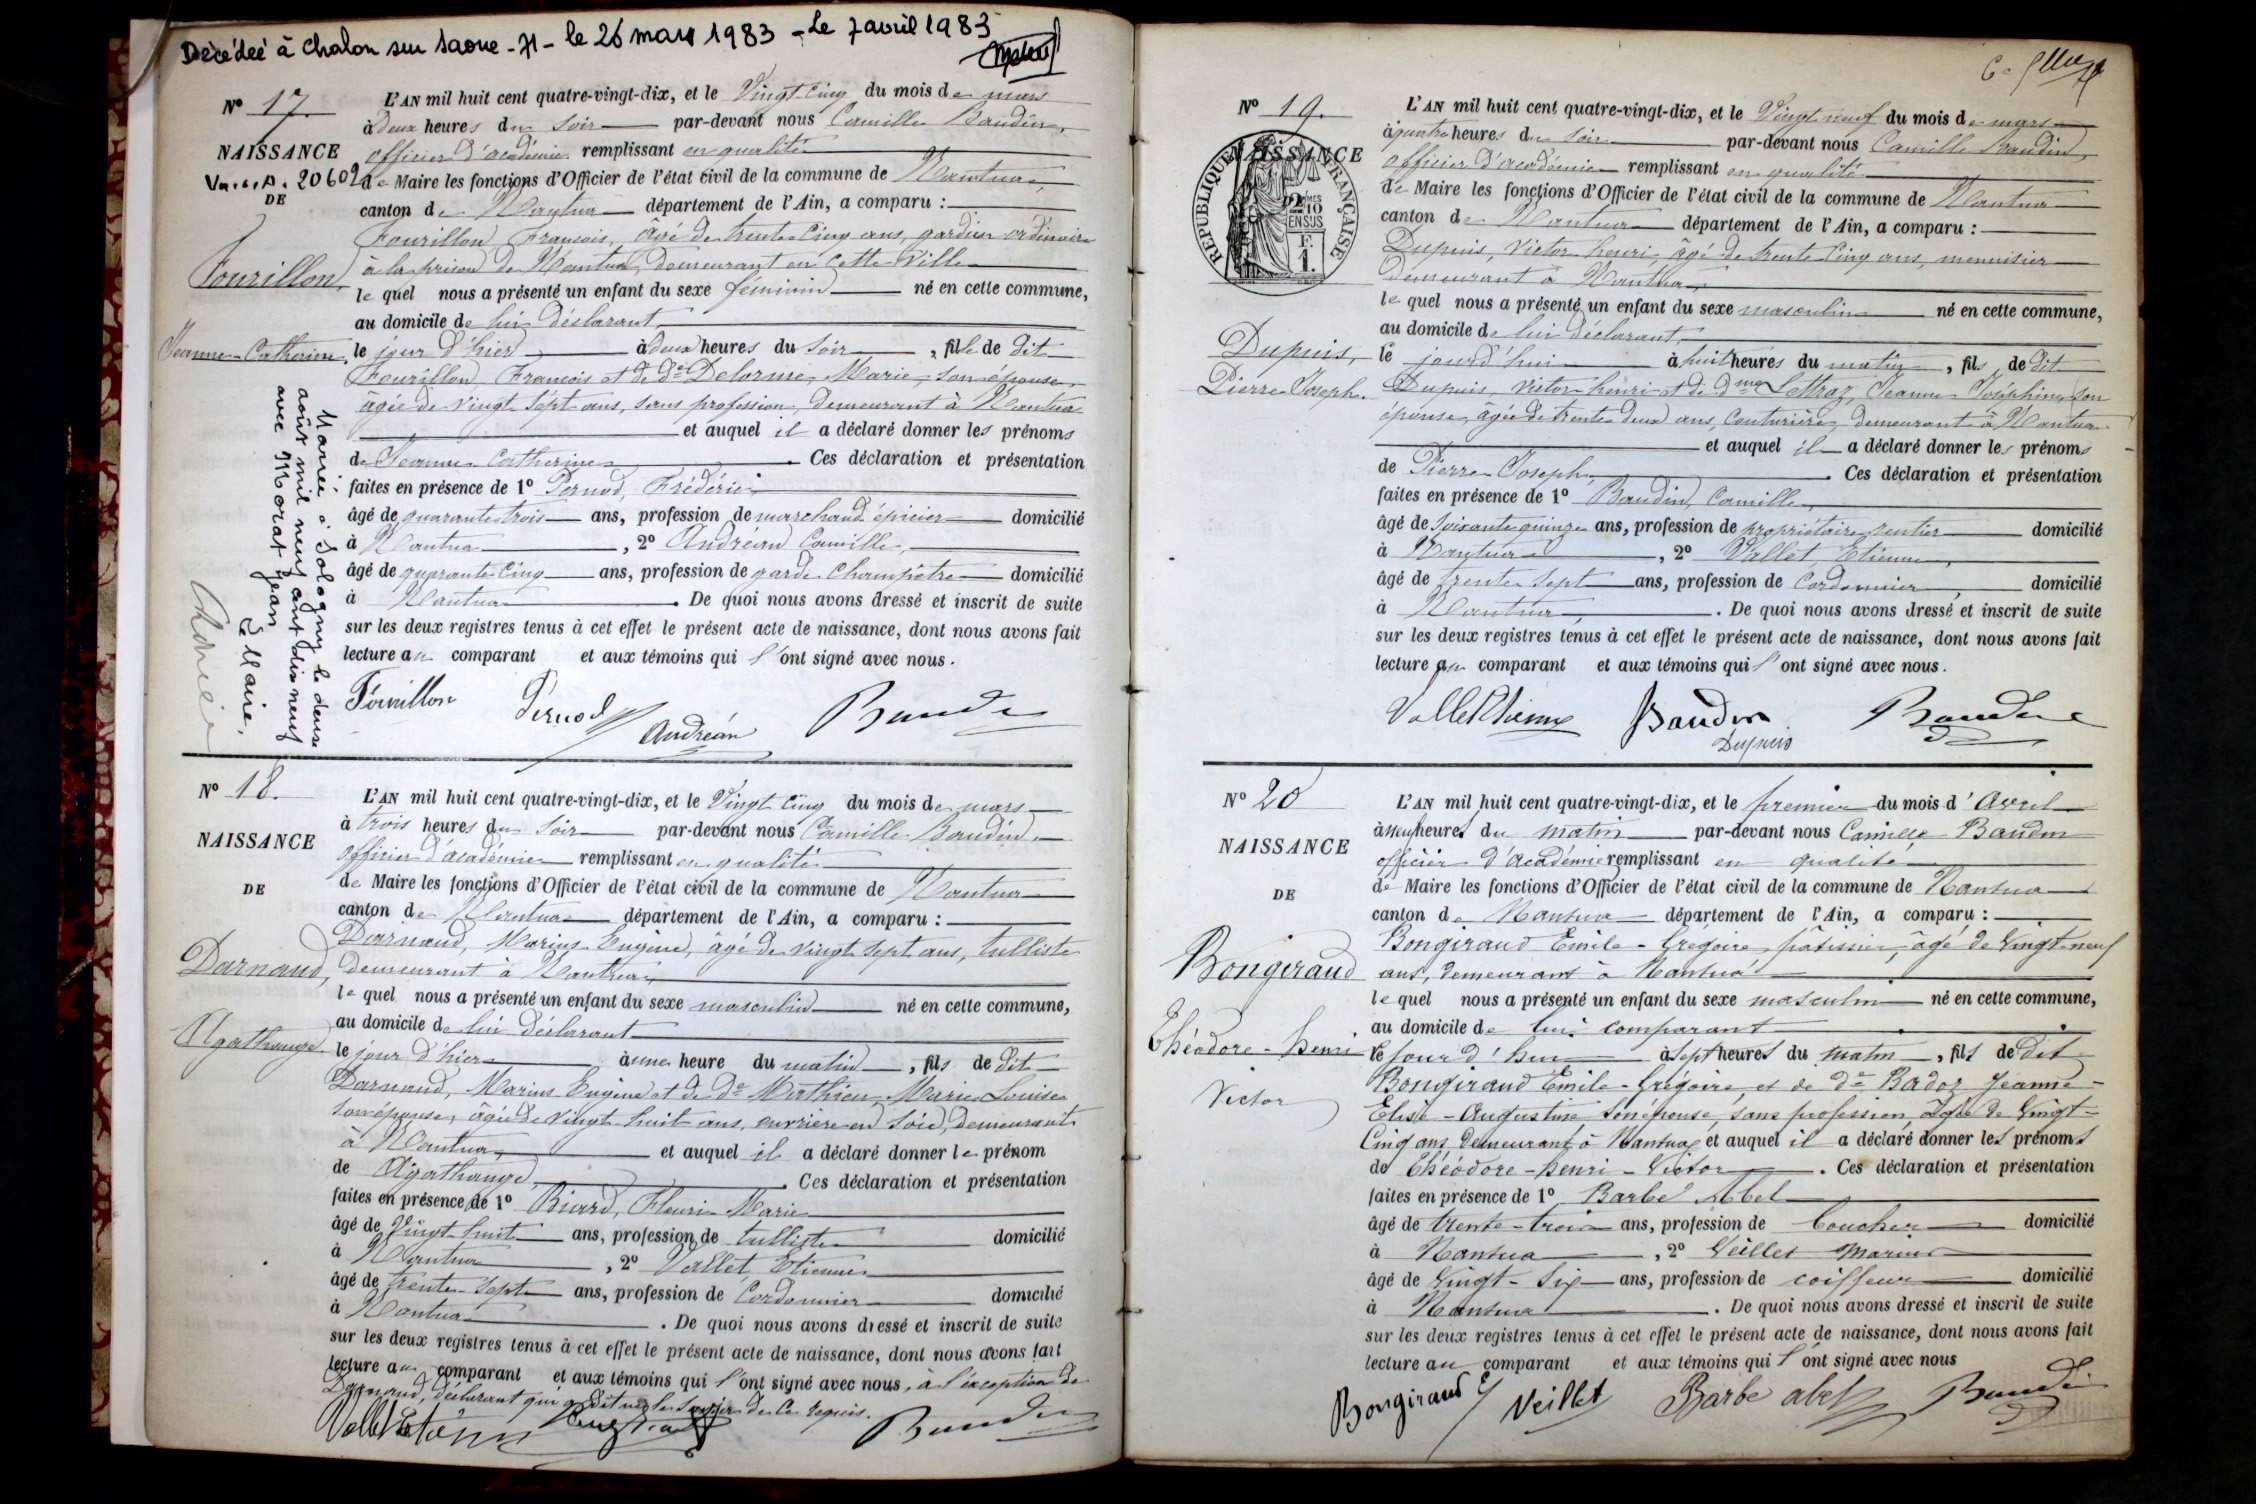 Décédée à Chalon sur Saone - 71 - le 26 mars 1983 - Le 7 avril 1983
N° 17.
NAISSANCE
20609
DE
Fourillon,
Jeanne-Catherine,
Mariée à Sologny le douze
août mil neuf cent dix neuf
avec Morat Jean
Le Maire,
L'AN mil huit cent quatre-vingt-dix, et le Vingt-Cinq du mois de mars
à deux heures du soir par-devant nous Camille Baudin,
officier d'académie remplissant en qualité
de Maire les fonctions d'Officier de l'état civil de la commune de Nantua,
canton de Nantua département de l'Ain, a comparu :
Fourillon, François, âgé de trente Cinq ans, gardien ordinaire
à la prison de Nantua, demeurant en cette Ville
le quel nous a présenté un enfant du sexe féminin né en cette commune,
au domicile de lui déclarant
le jour d'hier à deux heures du soir, fille de dit
Fourillon, François et de De Delorme, Marie, son épouse,
âgée de vingt sept ans, sans profession, demeurant à Nantua
et auquel il a déclaré donner les prénoms
de Jeanne Catherine. Ces déclaration et présentation
faites en présence de 1° Pernod, Frédéric
âgé de quarante trois ans, profession de marchand épicier domicilié
à Nantua, 2° Andréan Camille,
âgé de quarante Cinq ans, profession de garde Champêtre domicilié
à Nantua. De quoi nous avons dressé et inscrit de suite
sur les deux registres tenus à cet effet le présent acte de naissance, dont nous avons fait
lecture au comparant et aux témoins qui l'ont signé avec nous.
Fourillon Pernod Andréan Baudin
N° 18.
NAISSANCE
DE
Darnaud,
Agathange
L'AN mil huit cent quatre-vingt-dix, et le Vingt Cinq du mois de mars
à trois heures du soir par-devant nous Camille Baudin,
officier d'académie remplissant en qualité
de Maire les fonctions d'Officier de l'état civil de la commune de Nantua
canton de Nantua département de l'Ain, a comparu :
Darnaud, Marius Eugène, âgé de vingt sept ans, tulliste
demeurant à Nantua,
le quel nous a présenté un enfant du sexe masculin né en cette commune,
au domicile de lui déclarant
le jour d'hier à une heure du matin, fils de dit
Darnaud, Marius Eugène et de De Mathieu Marie Louise
son épouse, âgée de vingt huit ans, ouvrière en soie, demeurant
à Nantua, et auquel il a déclaré donner le prénom
de Agathange. Ces déclaration et présentation
faites en présence de 1° Biard, Fleuri Marie
âgé de Vingt huit ans, profession de tulliste domicilié
à Nantua, 2° Vallet Etienne
âgé de trente sept ans, profession de Cordonnier domicilié
à Nantua. De quoi nous avons dressé et inscrit de suite
sur les deux registres tenus à cet effet le présent acte de naissance, dont nous avons fait
lecture au comparant et aux témoins qui l'ont signé avec nous, à l'exception de
Darnaud, déclarant qui a dit ne le savoir de ce requis.
Vallet Etienne Baudin
N° 19.
NAISSANCE
REPUBLIQUE FRANÇAISE
2/10 EN SUS
F. 1.
Dupuis,
Pierre Joseph.
L'AN mil huit cent quatre-vingt-dix, et le Vingt neuf du mois de mars
à quatre heures du soir par-devant nous Camille Baudin,
officier d'académie remplissant en qualité
de Maire les fonctions d'Officier de l'état civil de la commune de Nantua
canton de Nantua département de l'Ain, a comparu :
Dupuis, Victor henri, âgé de trente Cinq ans, menuisier
demeurant à Nantua,
le quel nous a présenté un enfant du sexe masculin né en cette commune,
au domicile de lui déclarant,
le jourd'hui à huit heures du matin, fils de dit
Dupuis Victor henri et de dme Lettraz, Jeanne Joséphine, son
épouse, âgée de trente deux ans, couturière, demeurant à Nantua
et auquel il a déclaré donner les prénoms
de Pierre Joseph,. Ces déclaration et présentation
faites en présence de 1° Baudin Camille,
âgé de soixante quinze ans, profession de propriétaire rentier domicilié
à Nantua, 2° Vallet, Etienne,
âgé de trente sept ans, profession de Cordonnier, domicilié
à Nantua,. De quoi nous avons dressé et inscrit de suite
sur les deux registres tenus à cet effet le présent acte de naissance, dont nous avons fait
lecture au comparant et aux témoins qui l'ont signé avec nous.
Vallet Etienne Baudin Dupuis Baudin
N° 20
NAISSANCE
DE
Bongiraud
Théodore-henri
Victor
L'AN mil huit cent quatre-vingt-dix, et le premier du mois d'Avril
à neuf heures du matin par-devant nous Camille Baudin
officier d'Académie remplissant en qualité
de Maire les fonctions d'Officier de l'état civil de la commune de Nantua
canton de Nantua département de l'Ain, a comparu :
Bongiraud Emile-Grégoire, pâtissier, âgé de Vingt-neuf
ans, demeurant à Nantua
le quel nous a présenté un enfant du sexe masculin né en cette commune,
au domicile de lui comparant
le jour d'hui à sept heures du matin, fils de dit
Bongiraud Emile-Grégoire, et de De Badoz Jeanne-
Elise-Augustine son épouse, sans profession, âgée de Vingt-
Cinq ans, demeurant à Nantua, et auquel il a déclaré donner les prénoms
de Théodore-henri-Victor. Ces déclaration et présentation
faites en présence de 1° Barbe Abel
âgé de trente-trois ans, profession de boucher domicilié
à Nantua, 2° Veillet Marius
âgé de Vingt-Six ans, profession de coiffeur domicilié
à Nantua. De quoi nous avons dressé et inscrit de suite
sur les deux registres tenus à cet effet le présent acte de naissance, dont nous avons fait
lecture au comparant et aux témoins qui l'ont signé avec nous
Bongiraud E Veillet Barbe abel Baudin